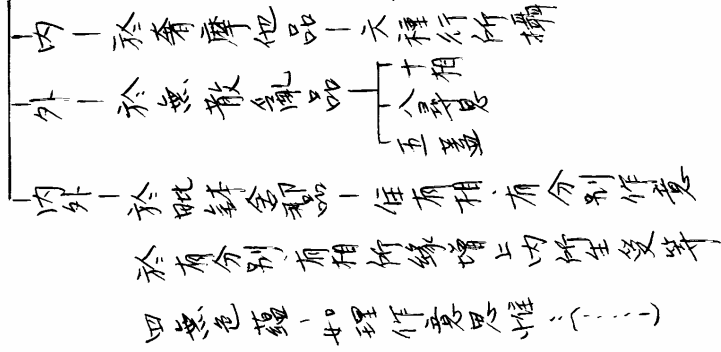 內－於奢摩他品－六種行所攝
外－於無散亂品
十相
八尋思
五蓋
內外－於毗鉢舍那品－住有相、有分別作意
於有分別、有相所緣增上內所生受等
四無色蘊、如理作意思惟：(……)